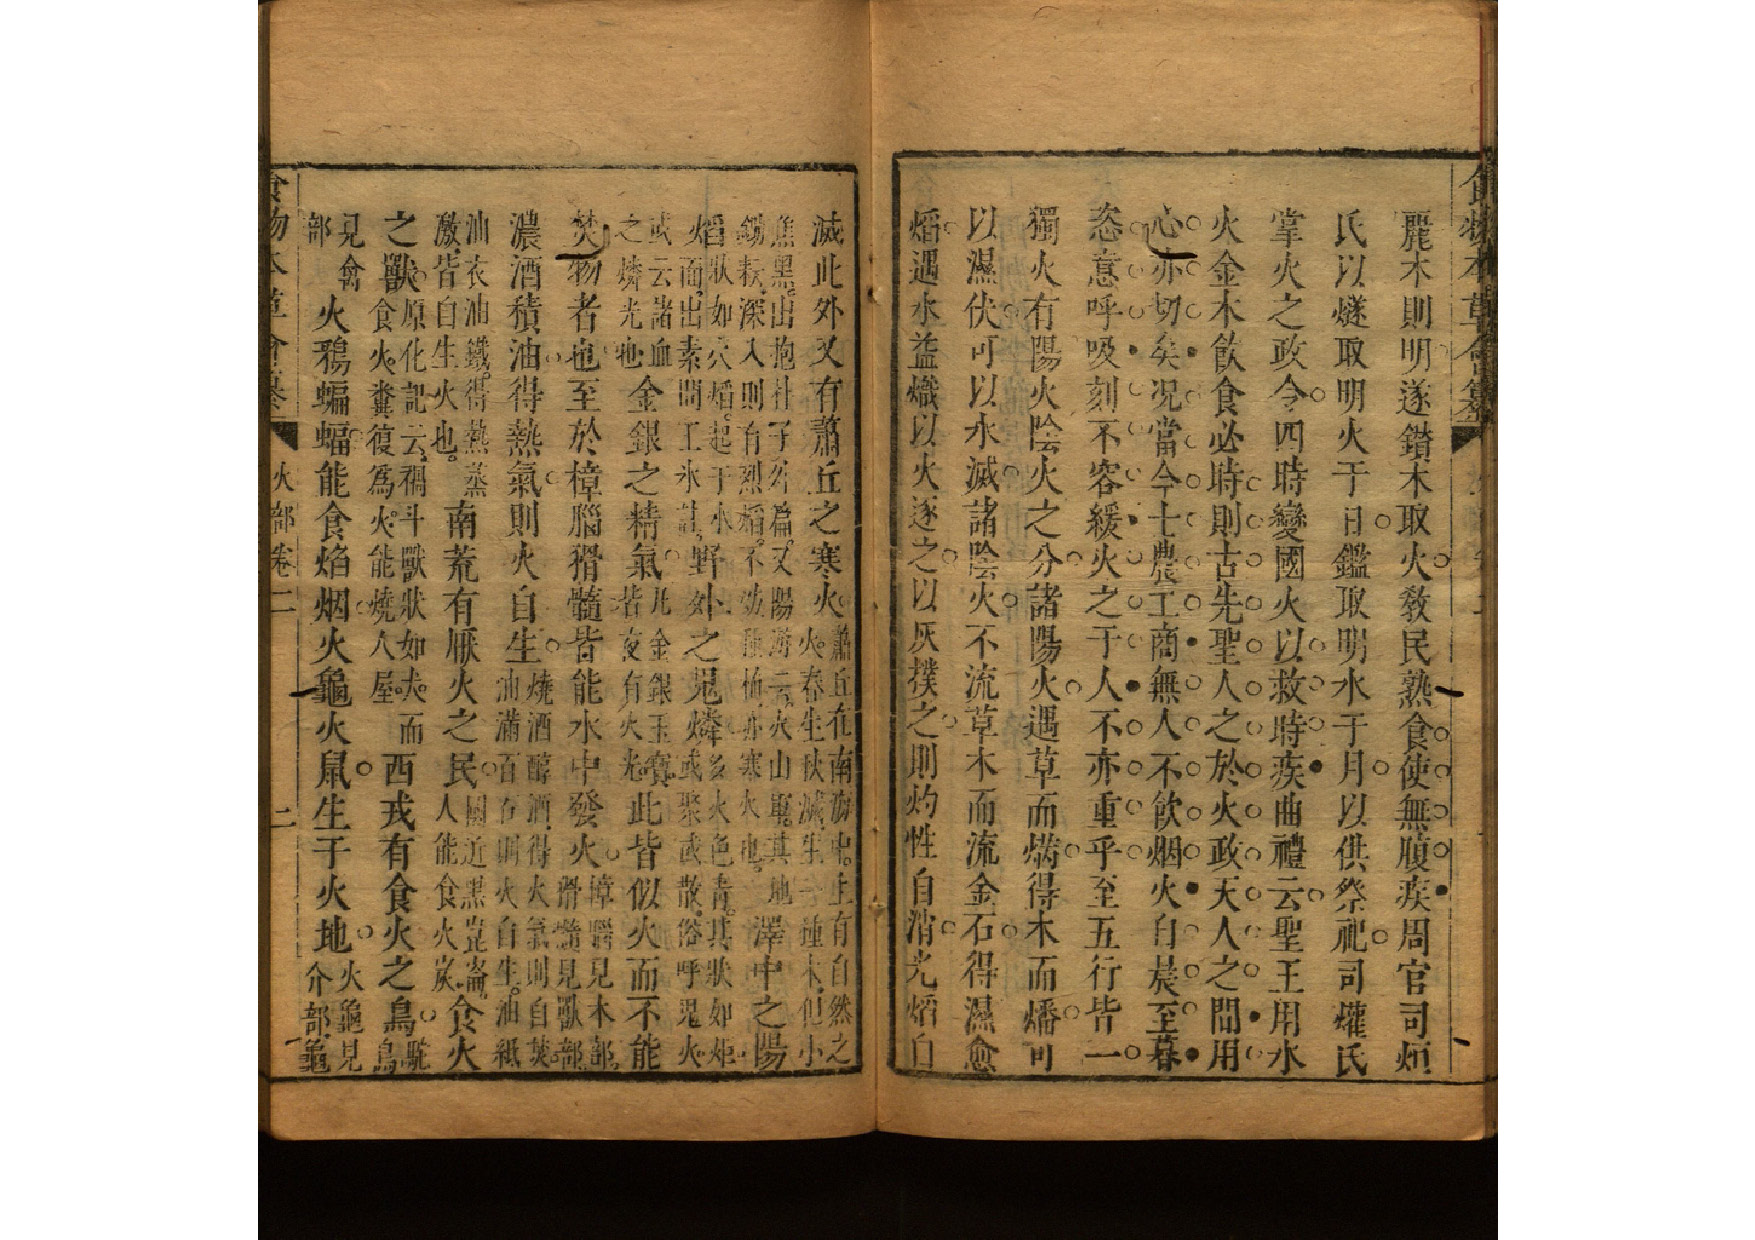 食物本草會纂
麗木則明遂鑚木取火敎民熟食使無腹疾周官司烜
氏以燧取明火于日鑑取明水于月以供祭祀司爟氏
掌火之政令四時變國火以救時疾曲禮云聖王用水
火金木飲食必時則古先聖人之於火政天人之間用
心亦切矣况當今士農工商無人不飲烟火自晨至暮
恣意呼吸刻不容緩火之于人不亦重乎至五行皆一
獨火有陽火陰火之分諸陽火遇草而焫得木而燔可
以濕伏可以水滅諸陰火不流草木而流金石得濕愈
熖遇水益熾以火逐之以灰撲之則灼性自消光熖自
滅此外又有蕭丘之寒火蕭丘在南海中上有自然之
火春生秋滅生一種木但小
焦黑出抱朴子外篇又陽海云火山軍其地
鋤耘深入則有烈熖不妨種植亦寒火也澤中之陽
熖狀如火熖起于水
火面出素問王氷註野外之鬼燐多火色青其狀如炬
或聚或散俗呼鬼火
或云諸血
之燐光也金銀之精氣凡金銀玉寶
皆夜有火光此皆似火而不能
焚物者也至於樟腦猾髓皆能水中發火樟腦見木部
猾髓見獸部
濃酒積油得熱氣則火自生燒酒醇酒得火氣則自焚
油滿百石則火自生油紙
油衣油鐵得熱蒸
激皆自生火也南荒有厭火之民國近黑崑崙
人能食火炭食火
之獸原化記云禍斗獸狀如犬而
食火糞復爲火能燒人屋西戎有食火之鳥駝鳥
見禽
部火鴉蝙蝠能食焰烟火龜火鼠生于火地火龜見
介部
食物本草會纂 火部卷二 二